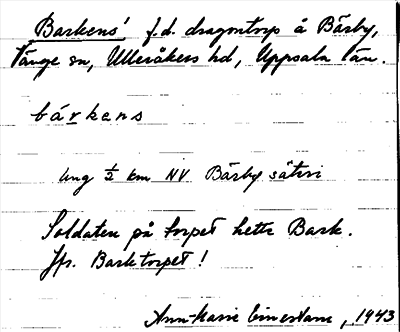 Barkens' f.d. dragontorp å Bärby,
Vänge sn, Ulleråkers hd, Uppsala län.
bárkens
ung ½ km NV Bärby säteri
Soldaten på torpet hette Bark.
Jfr. Barktorpet!
Ann-Marie , 1943